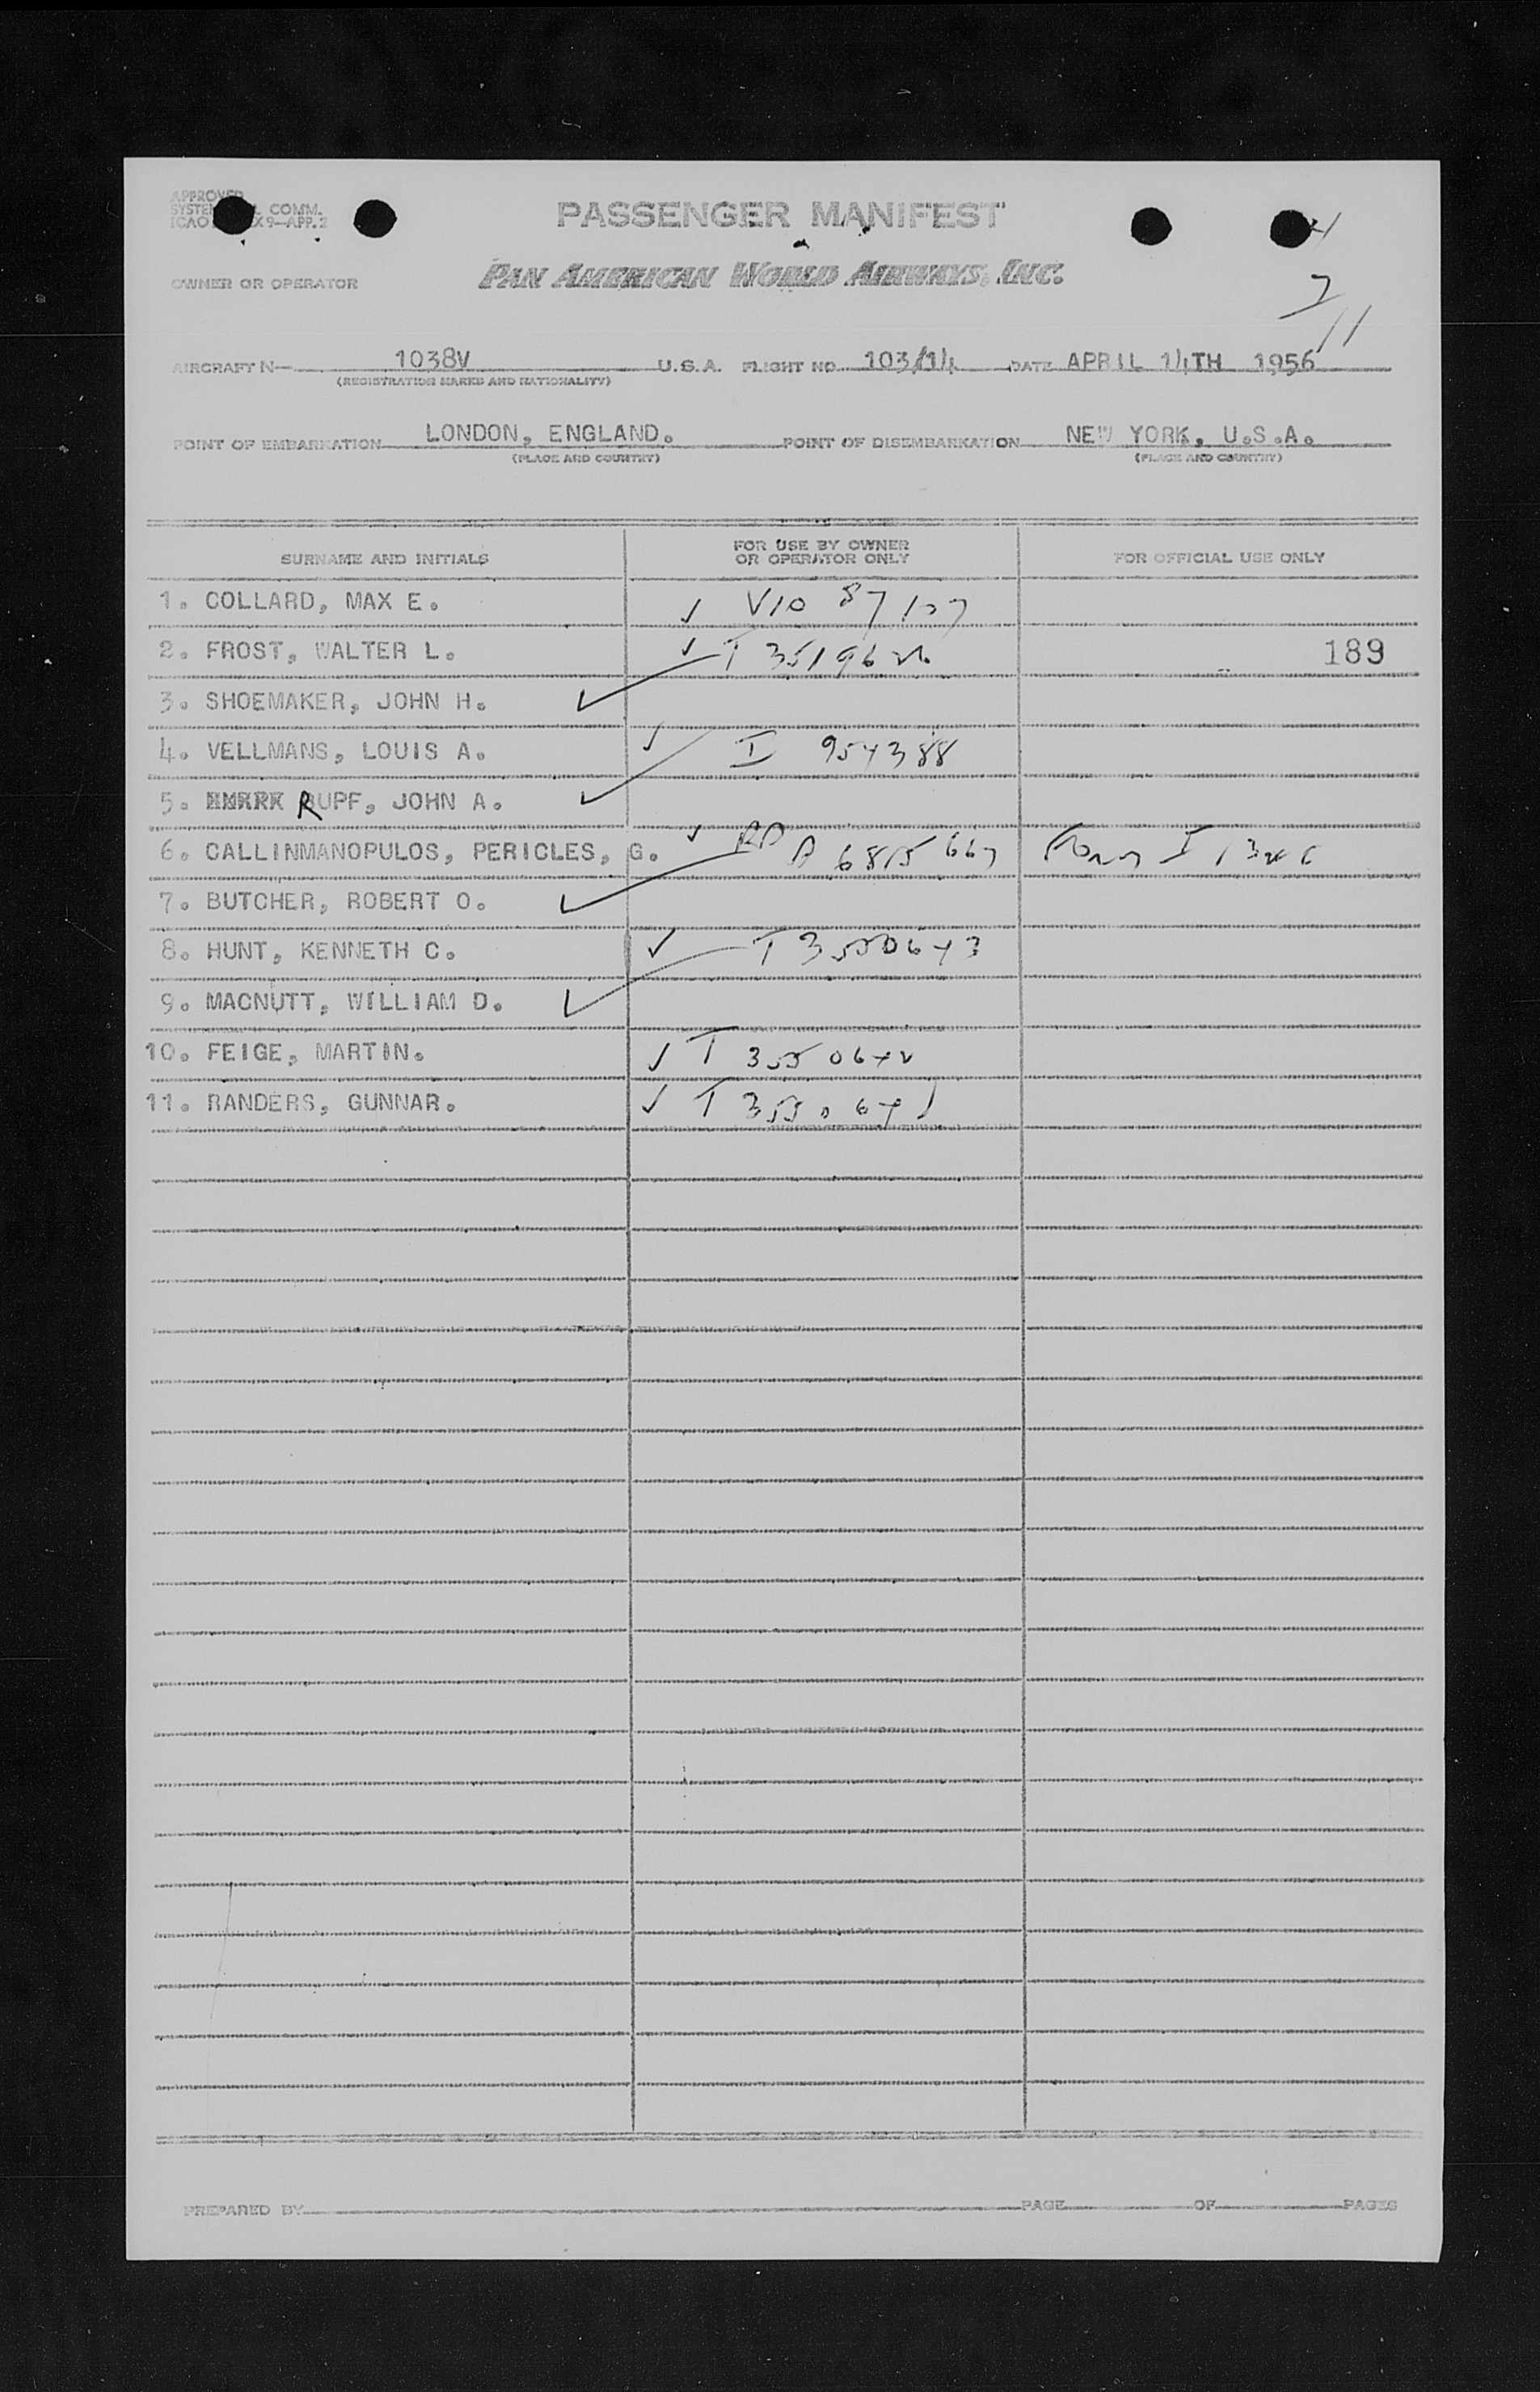 APPROVED
COMM.
ICAO X9—APP. 2
PASSENGER MANIFEST
OWNER OR OPERATOR PAN AMERICAN WORLD AIRWAYS, INC.
AIRCRAFT N— 1038V U.S.A. FLIGHT NO. 103/14 DATE APRIL 14TH 1956
(REGISTRATION MARKS AND NATIONALITY)
POINT OF EMBARKATION LONDON, ENGLAND. POINT OF DISEMBARKATION NEW YORK, U.S.A.
(PLACE AND COUNTRY) (PLACE AND COUNTRY)
SURNAME AND INITIALS FOR USE BY OWNER OR OPERATOR ONLY FOR OFFICIAL USE ONLY
1. COLLARD, MAX E. V10 87107
2. FROST, WALTER L. 189
3. SHOEMAKER, JOHN H.
4. VELLMANS, LOUIS A. I 954388
5. RUPF, JOHN A.
6. CALLINMANOPULOS, PERICLES, G. A 6815667
7. BUTCHER, ROBERT O.
8. HUNT, KENNETH C. T 3550643
9. MACNUTT, WILLIAM D.
10. FEIGE, MARTIN. T 3550642
11. RANDERS, GUNNAR. T 3550641
PREPARED BY PAGE OF PAGES